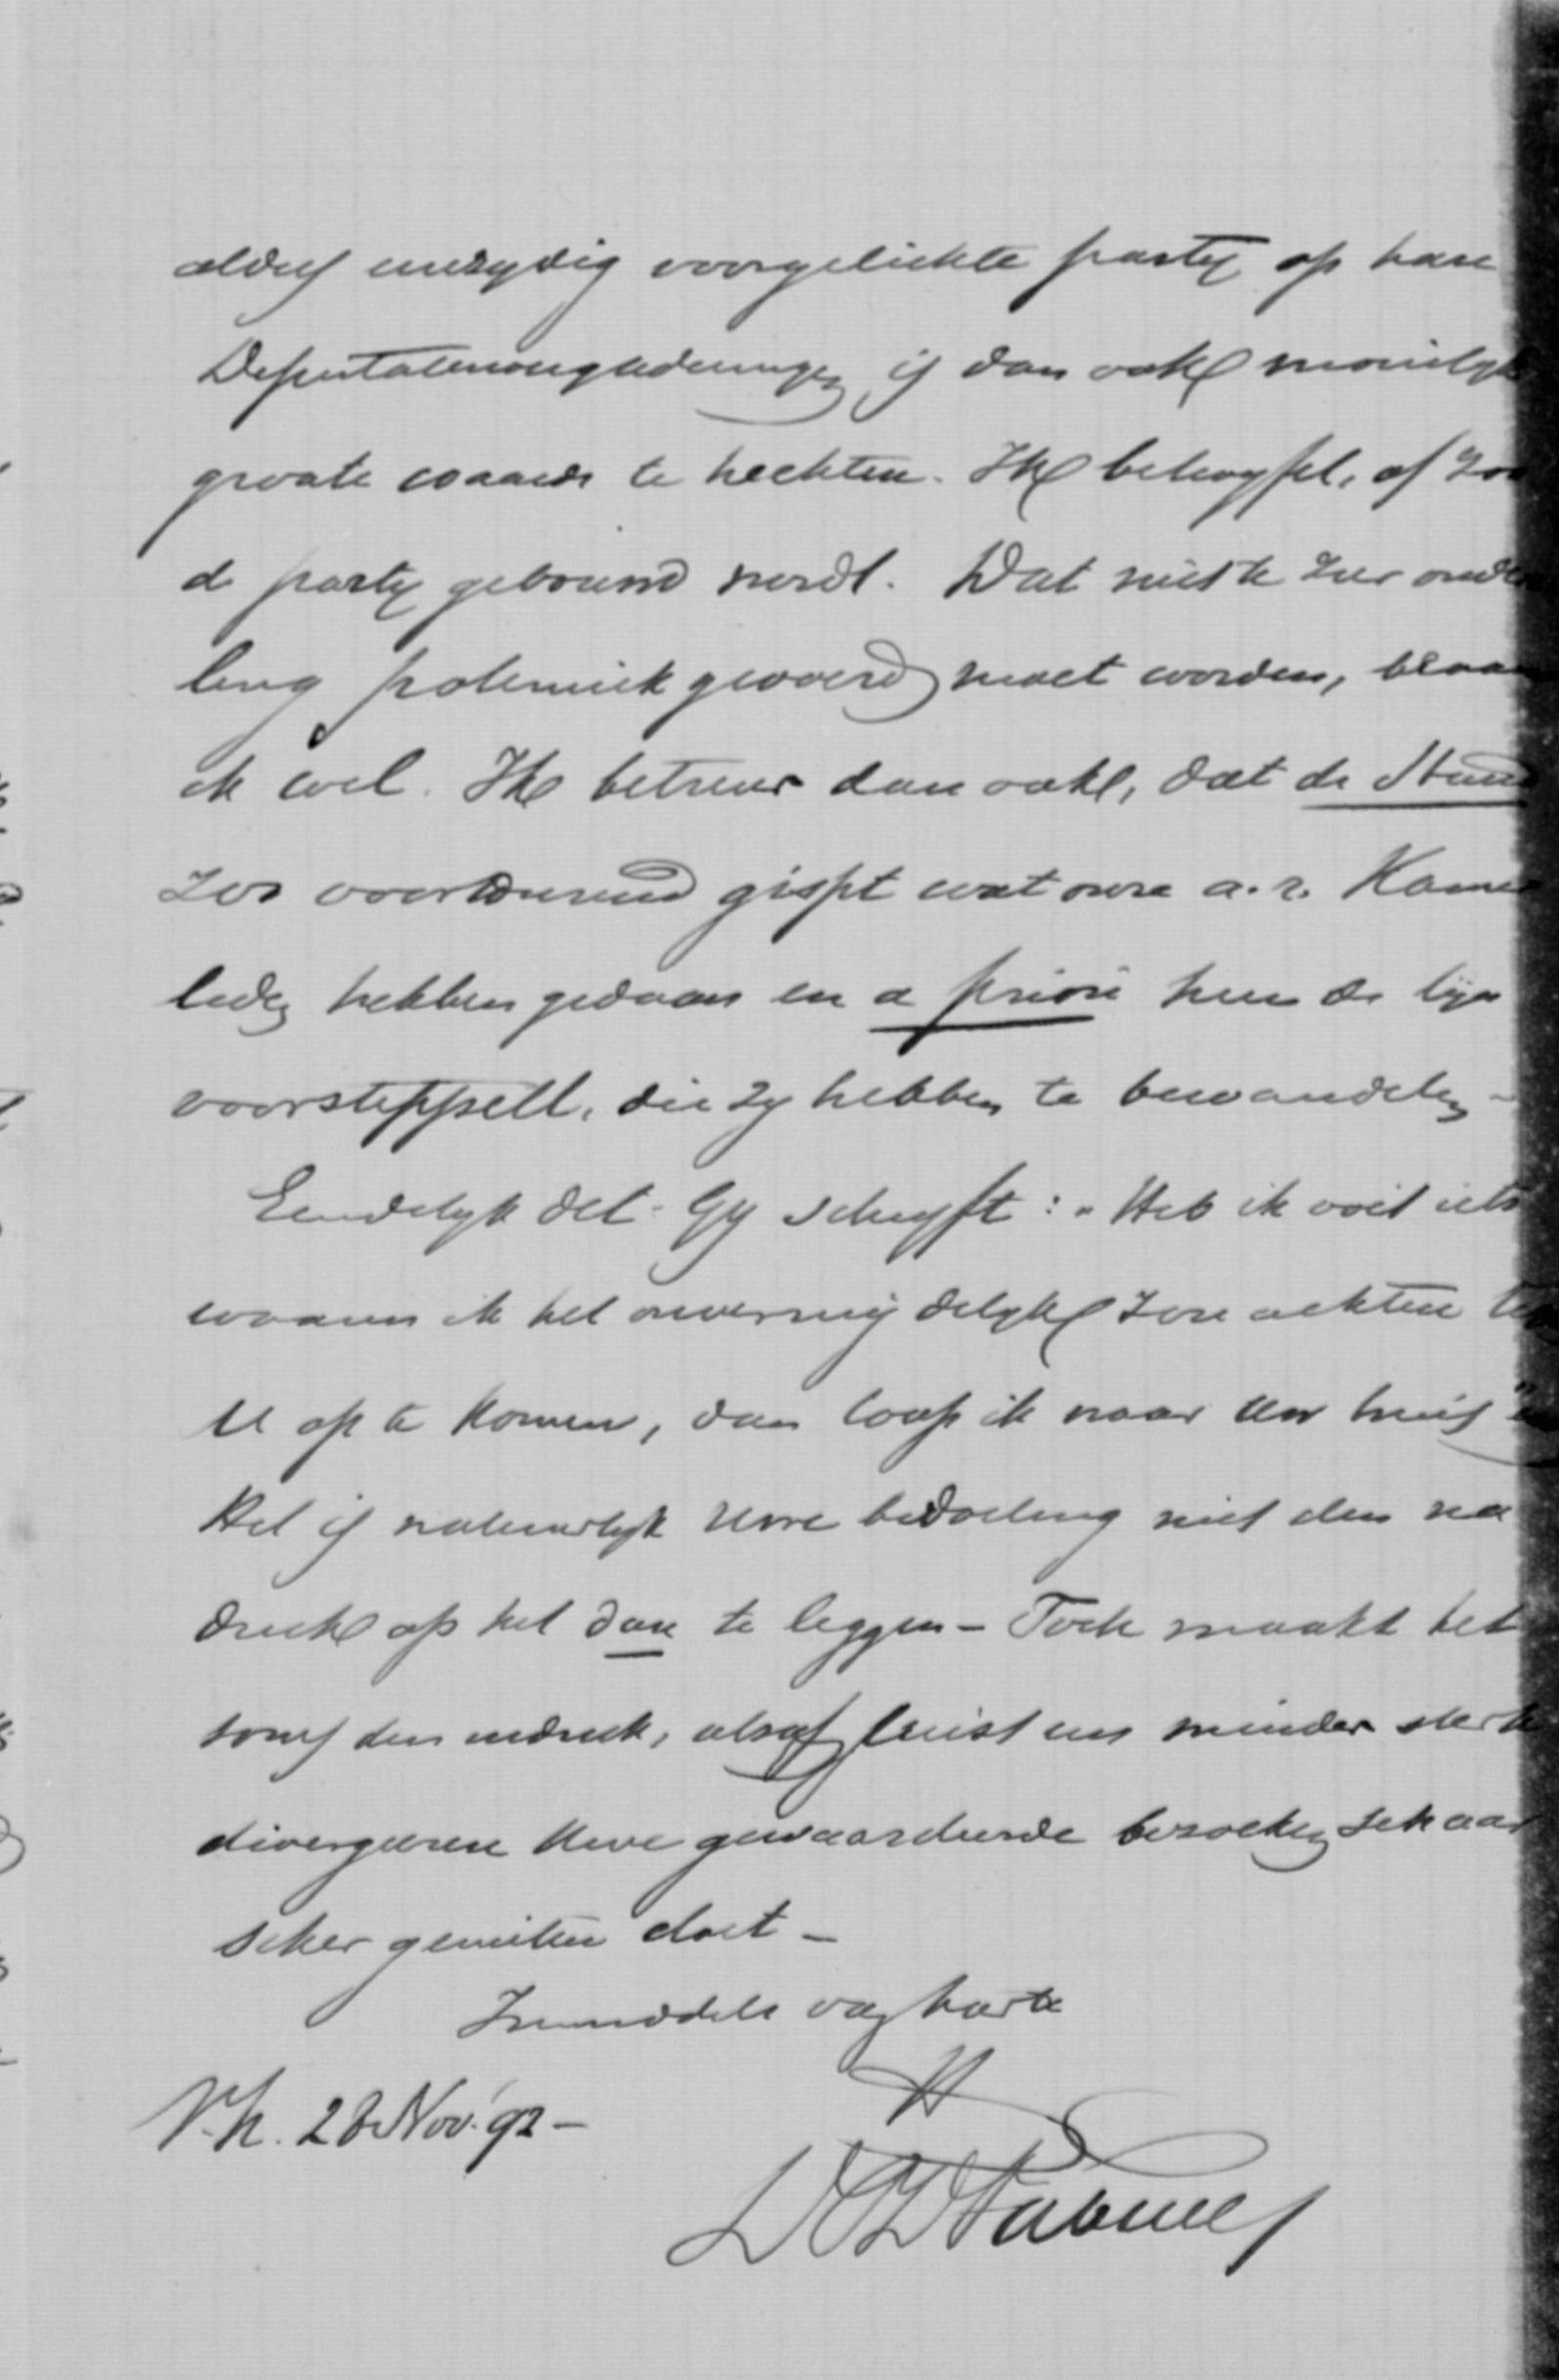 aldus eenzydig voorgelichte party op hare
Deputatenvergaderingen is dan ook moeilyk
groote waarde te hechten. Ik betwyfel, of zoo
de party gebouwd wordt. Dat niet te zeer onder
ling polemiek gevoerd moet worden, beaam
ik wel. Ik betreur dan ook, dat de Stand
zoo voortdurend gispt wat onze a.r. Kamer
leden hebben gedaan en a priori hun de lijn
voorstippelt, die zy hebben te bewandelen -
Eindelyk dit. Gy schryft: „Heb ik ooit iets
waarin ik het onvermijdelyk zou achten teg
U op te komen, dan loop ik naar Uw huis"
Het is natuurlyk Uwe bedoeling niet den na
druk op het dan te leggen - Toch maakt het
soms den indruk, alsof juist een minder sterk
divergeeren Uwe gewaardeerde bezoeken schaar
scher genieten doet -
Inmiddels van harte
V.h. 28 Nov. 92 -